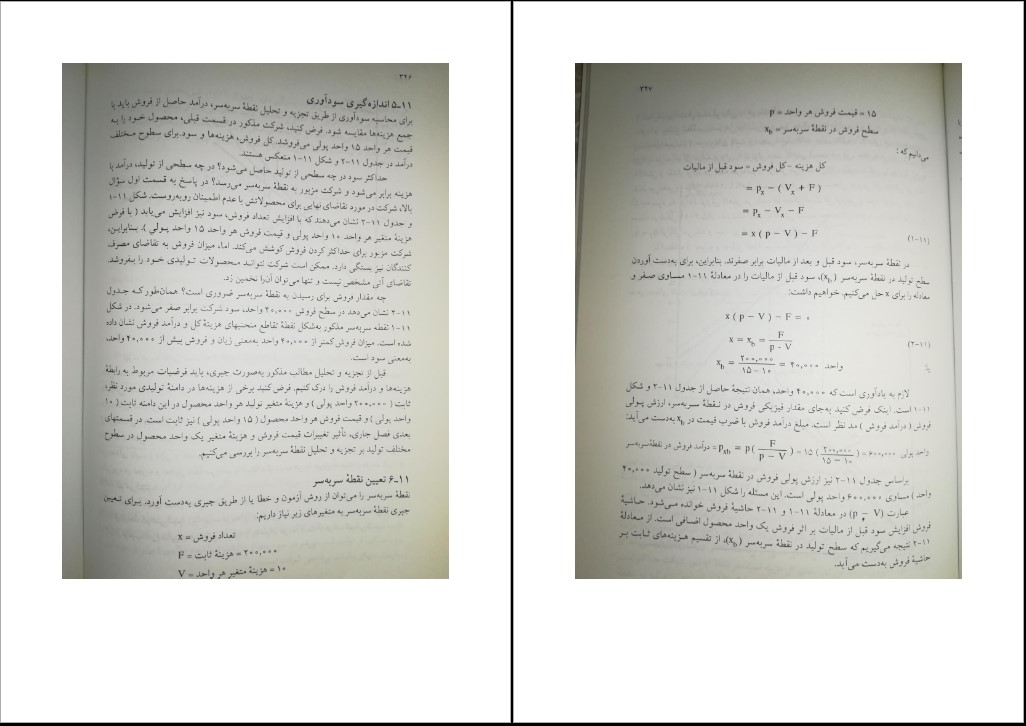 ۳۴۶
۱۱ـ۵ اندازه‌گیری سودآوری
برای محاسبه سودآوری از طریق تجزیه و تحلیل نقطهٔ سربه‌سر، درآمد حاصل از فروش باید با
جمع هزینه‌ها مقایسه شود. فرض کنید، شرکت مذکور در قسمت قبلی، محصول خود را به
قیمت هر واحد ۱۵ واحد پولی می‌فروشد. کل فروش، هزینه‌ها و سود برای سطوح مختلف
درآمد در جدول ۱۱-۲ و شکل ۱۱-۱ منعکس هستند.
حداکثر سود در چه سطحی از تولید حاصل می‌شود؟ در چه سطحی از تولید، درآمد با
هزینه برابر می‌شود و شرکت مزبور به نقطهٔ سربه‌سر می‌رسد؟ در پاسخ به قسمت اول سؤال
بالا، شرکت در مورد تقاضای نهایی برای محصولاتش با عدم اطمینان روبه‌روست. شکل ۱۱-۱
و جدول ۱۱-۲ نشان می‌دهند که با افزایش تعداد فروش، سود نیز افزایش می‌یابد ( با فرض
هزینهٔ متغیر هر واحد ۱۰ واحد پولی و قیمت فروش هر واحد ۱۵ واحد پولی ). بنابراین،
شرکت مزبور برای حداکثر کردن فروش کوشش می‌کند. اما، میزان فروش به تقاضای مصرف
کنندگان نیز بستگی دارد. ممکن است شرکت نتواند محصولات تولیدی خود را بفروشد.
تقاضای آتی مشخص نیست و تنها می‌توان آن‌را تخمین زد.
چه مقدار فروش برای رسیدن به نقطهٔ سربه‌سر ضروری است؟ همان‌طور که جدول
۱۱-۲ نشان می‌دهد در سطح فروش ۴۰,۰۰۰ واحد، سود شرکت برابر صفر می‌شود. در شکل
۱۱-۱ نقطه سربه‌سر مذکور به‌شکل نقطهٔ تقاطع منحنیهای هزینهٔ کل و درآمد فروش نشان داده
شده است. میزان فروش کمتر از ۴۰,۰۰۰ واحد به‌معنی زیان و فروش بیش از ۴۰,۰۰۰ واحد،
به‌معنی سود است.
قبل از تجزیه و تحلیل مطالب مذکور به‌صورت جبری، باید فرضیات مربوط به رابطهٔ
هزینه‌ها و درآمد فروش را درک کنیم. فرض کنید برخی از هزینه‌ها در دامنهٔ تولیدی مورد نظر،
ثابت ( ۲۰۰,۰۰۰ واحد پولی ) و هزینهٔ متغیر تولید هر واحد محصول در این دامنه ثابت ( ۱۰
واحد پولی ) و قیمت فروش هر واحد محصول ( ۱۵ واحد پولی ) نیز ثابت است. در قسمتهای
بعدی فصل جاری، تأثیر تغییرات قیمت فروش و هزینهٔ متغیر یک واحد محصول در سطوح
مختلف تولید بر تجزیه و تحلیل نقطهٔ سربه‌سر را بررسی می‌کنیم.
۱۱ـ۶ تعیین نقطهٔ سربه‌سر
نقطهٔ سربه‌سر را می‌توان از روش آزمون و خطا یا از طریق جبری به‌دست آورد. برای تعیین
جبری نقطهٔ سربه‌سر به متغیرهای زیر نیاز داریم:
تعداد فروش = x
۲۰۰,۰۰۰ = هزینهٔ ثابت = F
۱۰ = هزینهٔ متغیر هر واحد = V
۳۴۷
۱۵ = قیمت فروش هر واحد = p
سطح فروش در نقطهٔ سربه‌سر = xb
می‌دانیم که :
کل هزینه - کل فروش = سود قبل از مالیات
= px − ( Vx + F )
= px − Vx − F
= x ( p − V ) − F (۱-۱۱)
در نقطهٔ سربه‌سر، سود قبل و بعد از مالیات برابر صفرند. بنابراین، برای به‌دست آوردن
سطح تولید در نقطهٔ سربه‌سر (xb)، سود قبل از مالیات را در معادلهٔ ۱۱-۱ مساوی صفر و
معادله را برای x حل می‌کنیم. خواهیم داشت:
x ( p − V ) − F = ۰
x = xb = F / (p - V) (۲-۱۱)
یا: xb = ۲۰۰,۰۰۰ / (۱۵ − ۱۰) = ۴۰,۰۰۰ واحد
لازم به یادآوری است که ۴۰,۰۰۰ واحد، همان نتیجهٔ حاصل از جدول ۱۱-۲ و شکل
۱۱-۱ است. اینک فرض کنید به‌جای مقدار فیزیکی فروش در نقطهٔ سربه‌سر، ارزش پولی
فروش ( درآمد فروش ) مد نظر است. مبلغ درآمد فروش با ضرب قیمت در xb به‌دست می‌آید:
واحد پولی ۶۰۰,۰۰۰ = ( ۲۰۰,۰۰۰ / (۱۵ − ۱۰) ) ۱۵ = pxb = p ( F / (p − V) ) = درآمد فروش در نقطهٔ سربه‌سر
براساس جدول ۱۱-۲ نیز ارزش پولی فروش در نقطهٔ سربه‌سر ( سطح تولید ۴۰,۰۰۰
واحد ) مساوی ۶۰۰,۰۰۰ واحد پولی است. این مسئله را شکل ۱۱-۱ نیز نشان می‌دهد.
عبارت (p − V) در معادلهٔ ۱۱-۱ و ۱۱-۲ حاشیهٔ فروش خوانده می‌شود. حاشیهٔ
فروش افزایش سود قبل از مالیات بر اثر فروش یک واحد محصول اضافی است. از معادلهٔ
۱۱-۲ نتیجه می‌گیریم که سطح تولید در نقطهٔ سربه‌سر (xb)، از تقسیم هزینه‌های ثابت بر
حاشیهٔ فروش به‌دست می‌آید.